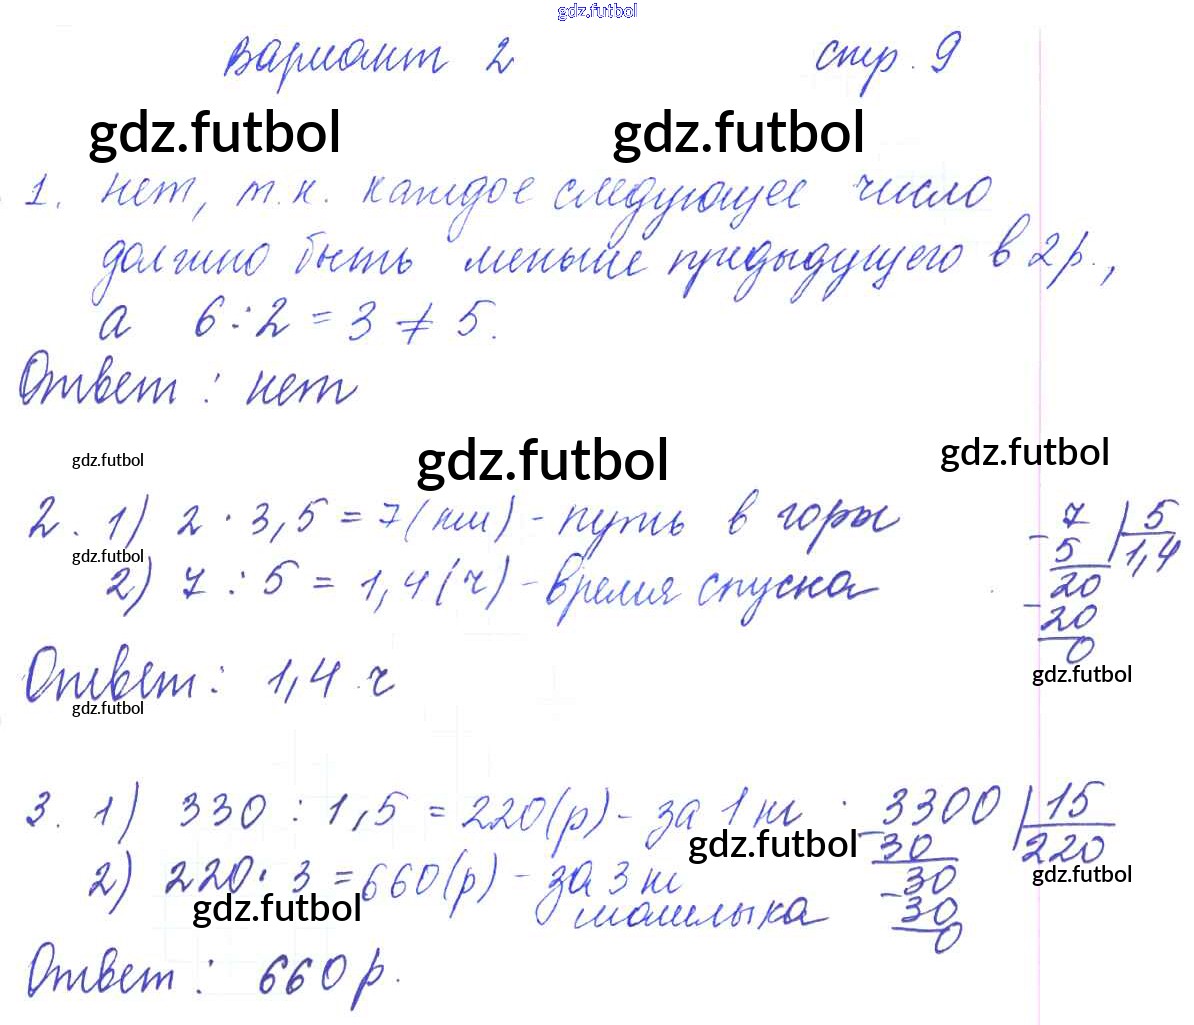 gdz.futbol
вариант 2 стр. 9
gdz.futbol gdz.futbol
1. нет, т.к. каждое следующее число
должно быть меньше предыдущего в 2 р.,
а 6 : 2 = 3 ≠ 5.
Ответ : нет
gdz.futbol gdz.futbol gdz.futbol
2. 1) 2 · 3,5 = 7 (км) - путь в горы
gdz.futbol
2) 7 : 5 = 1,4 (ч) - время спуска
- 7 | 5
5 1,4
20
- 20
0
Ответ : 1,4 ч
gdz.futbol
gdz.futbol
3. 1) 330 : 1,5 = 220 (р) - за 1 кг
- 3300 | 15
30 220
30
- 30
0
gdz.futbol
gdz.futbol
2) 220 · 3 = 660 (р) - за 3 кг
шашлыка
gdz.futbol
Ответ : 660 р.